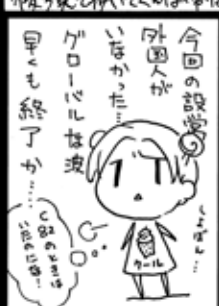 今回の設営
外国人が
いなかった…
グローバルな波
早くも終了か…
しょぼん…
C82のときは
いたのにな…
クール